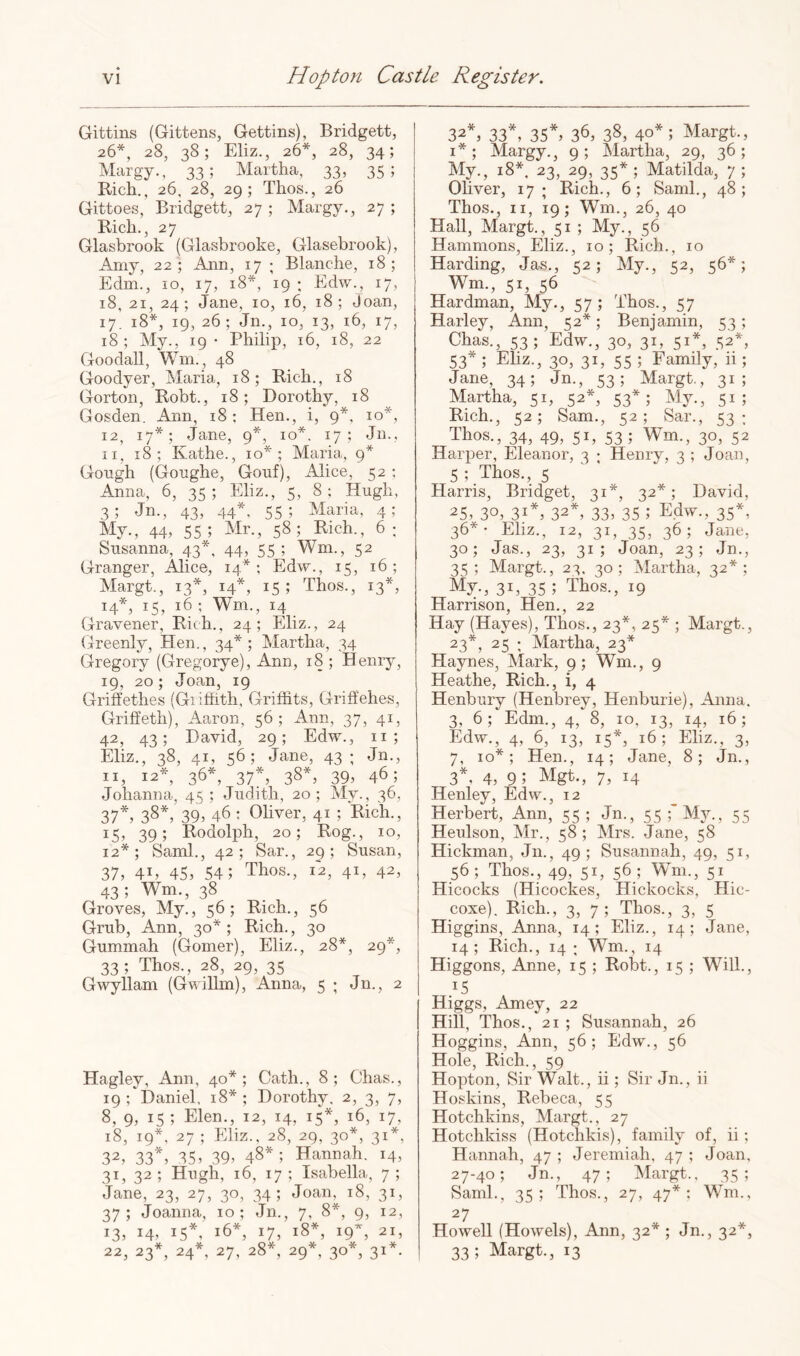 vi Hopton Castle Register.
Gittins (Gittens, Gettins), Bridgett,
26*, 28, 38; Eliz., 26*, 28, 34;
Margy., 33; Martha, 33, 35;
Rich., 26, 28, 29; Thos., 26
Gittoes, Bridgett, 27; Margy., 27;
Rich., 27
Glasbrook (Glasbrooke, Glasebrook),
Amy, 22; Ann, 17; Blanche, 18;
Edm., 10, 17, 18*, 19; Edw., 17,
18, 21, 24; Jane, 10, 16, 18; Joan,
17, 18*, 19, 26; Jn., 10, 13, 16, 17,
18; My., 19; Philip, 16, 18, 22
Goodall, Wm., 48
Goodyer, Maria, 18; Rich., 18
Gorton, Robt., 18; Dorothy, 18
Gosden, Ann, 18; Hen., i, 9*, 10*,
12, 17*; Jane, 9*, 10*, 17; Jn.,
11, 18; Kathe., 10*; Maria, 9*
Gough (Goughe, Gouf), Alice, 52;
Anna, 6, 35; Eliz., 5, 8; Hugh,
3; Jn., 43, 44*, 55; Maria, 4;
My., 44, 55; Mr., 58; Rich., 6;
Susanna, 43*, 44, 55; Wm., 52
Granger, Alice, 14*; Edw., 15, 16;
Margt., 13*, 14*, 15; Thos., 13*,
14*, 15, 16; Wm., 14
Gravener, Rich., 24; Eliz., 24
Greenly, Hen., 34*; Martha, 34
Gregory (Gregorye), Ann, 18; Henry,
19, 20; Joan, 19
Griffethes (Griffith, Griffits, Griffehes,
Griffeth), Aaron, 56; Ann, 37, 41,
42, 43; David, 29; Edw., 11;
Eliz., 38, 41, 56; Jane, 43; Jn.,
11, 12*, 36*, 37*, 38*, 39, 46;
Johanna, 45; Judith, 20; My., 36,
37*, 38*, 39, 46; Oliver, 41; Rich.,
15, 39; Rodolph, 20; Rog., 10,
12*; Saml., 42; Sar., 29; Susan,
37, 41, 45, 54; Thos., 12, 41, 42,
43; Wm., 38
Groves, My., 56; Rich., 56
Grub, Ann, 30*; Rich., 30
Gummah (Gomer), Eliz., 28*, 29*,
33; Thos., 28, 29, 35
Gwyllam (Gwillm), Anna, 5; Jn., 2
Hagley, Ann, 40*; Cath., 8; Chas.,
19; Daniel, 18*; Dorothy, 2, 3, 7,
8, 9, 15; Elen., 12, 14, 15*, 16, 17,
18, 19*, 27; Eliz., 28, 29, 30*, 31*,
32, 33*, 35, 39, 48*; Hannah, 14,
31, 32; Hugh, 16, 17; Isabella, 7;
Jane, 23, 27, 30, 34; Joan, 18, 31,
37; Joanna, 10; Jn., 7, 8*, 9, 12,
13, 14, 15*, 16*, 17, 18*, 19*, 21,
22, 23*, 24*, 27, 28*, 29*, 30*, 31*.
32*, 33*, 35*, 36, 38, 40*; Margt.,
1*; Margy., 9; Martha, 29, 36;
My., 18*, 23, 29, 35*; Matilda, 7;
Oliver, 17; Rich., 6; Saml., 48;
Thos., 11, 19; Wm., 26, 40
Hall, Margt., 51; My., 56
Hammons, Eliz., 10; Rich., 10
Harding, Jas., 52; My., 52, 56*;
Wm., 51, 56
Hardman, My., 57; Thos., 57
Harley, Ann, 52*; Benjamin, 53;
Chas., 53; Edw., 30, 31, 51*, 52*,
53*; Eliz., 30, 31, 55; Family, ii;
Jane, 34; Jn., 53; Margt., 31;
Martha, 51, 52*, 53*; My., 51;
Rich., 52; Sam., 52; Sar., 53;
Thos., 34, 49, 51, 53; Wm., 30, 52
Harper, Eleanor, 3; Henry, 3; Joan,
5; Thos., 5
Harris, Bridget, 31*, 32*; David,
25, 30, 31*, 32*, 33, 35; Edw., 35*,
36*; Eliz., 12, 31, 35, 36; Jane,
30; Jas., 23, 31; Joan, 23; Jn.,
35; Margt., 23, 30; Martha, 32*;
My., 31, 35; Thos., 19
Harrison, Hen., 22
Hay (Hayes), Thos., 23*, 25*; Margt.,
23*, 25; Martha, 23*
Haynes, Mark, 9; Wm., 9
Heathe, Rich., i, 4
Henbury (Henbrey, Henburie), Anna,
3, 6; Edm., 4, 8, 10, 13, 14, 16;
Edw., 4, 6, 13, 15*, 16; Eliz., 3,
7, 10*; Hen., 14; Jane, 8; Jn.,
3*, 4, 9; Mgt., 7, 14
Henley, Edw., 12
Herbert, Ann, 55; Jn., 55; My., 55
Heulson, Mr., 58; Mrs. Jane, 58
Hickman, Jn., 49; Susannah, 49, 51,
56; Thos., 49, 51, 56; Wm., 51
Hicocks (Hicockes, Hickocks, Hic-
coxe), Rich., 3, 7; Thos., 3, 5
Higgins, Anna, 14; Eliz., 14; Jane,
14; Rich., 14; Wm., 14
Higgons, Anne, 15; Robt., 15; Will.,
15
Higgs, Amey, 22
Hill, Thos., 21; Susannah, 26
Hoggins, Ann, 56; Edw., 56
Hole, Rich., 59
Hopton, Sir Walt., ii; Sir Jn., ii
Hoskins, Rebeca, 55
Hotchkins, Margt., 27
Hotchkiss (Hotchkis), family of, ii;
Hannah, 47; Jeremiah, 47; Joan,
27-40; Jn., 47; Margt., 35;
Saml., 35; Thos., 27, 47*; Wm.,
27
Howell (Howels), Ann, 32*; Jn., 32*,
33; Margt., 13